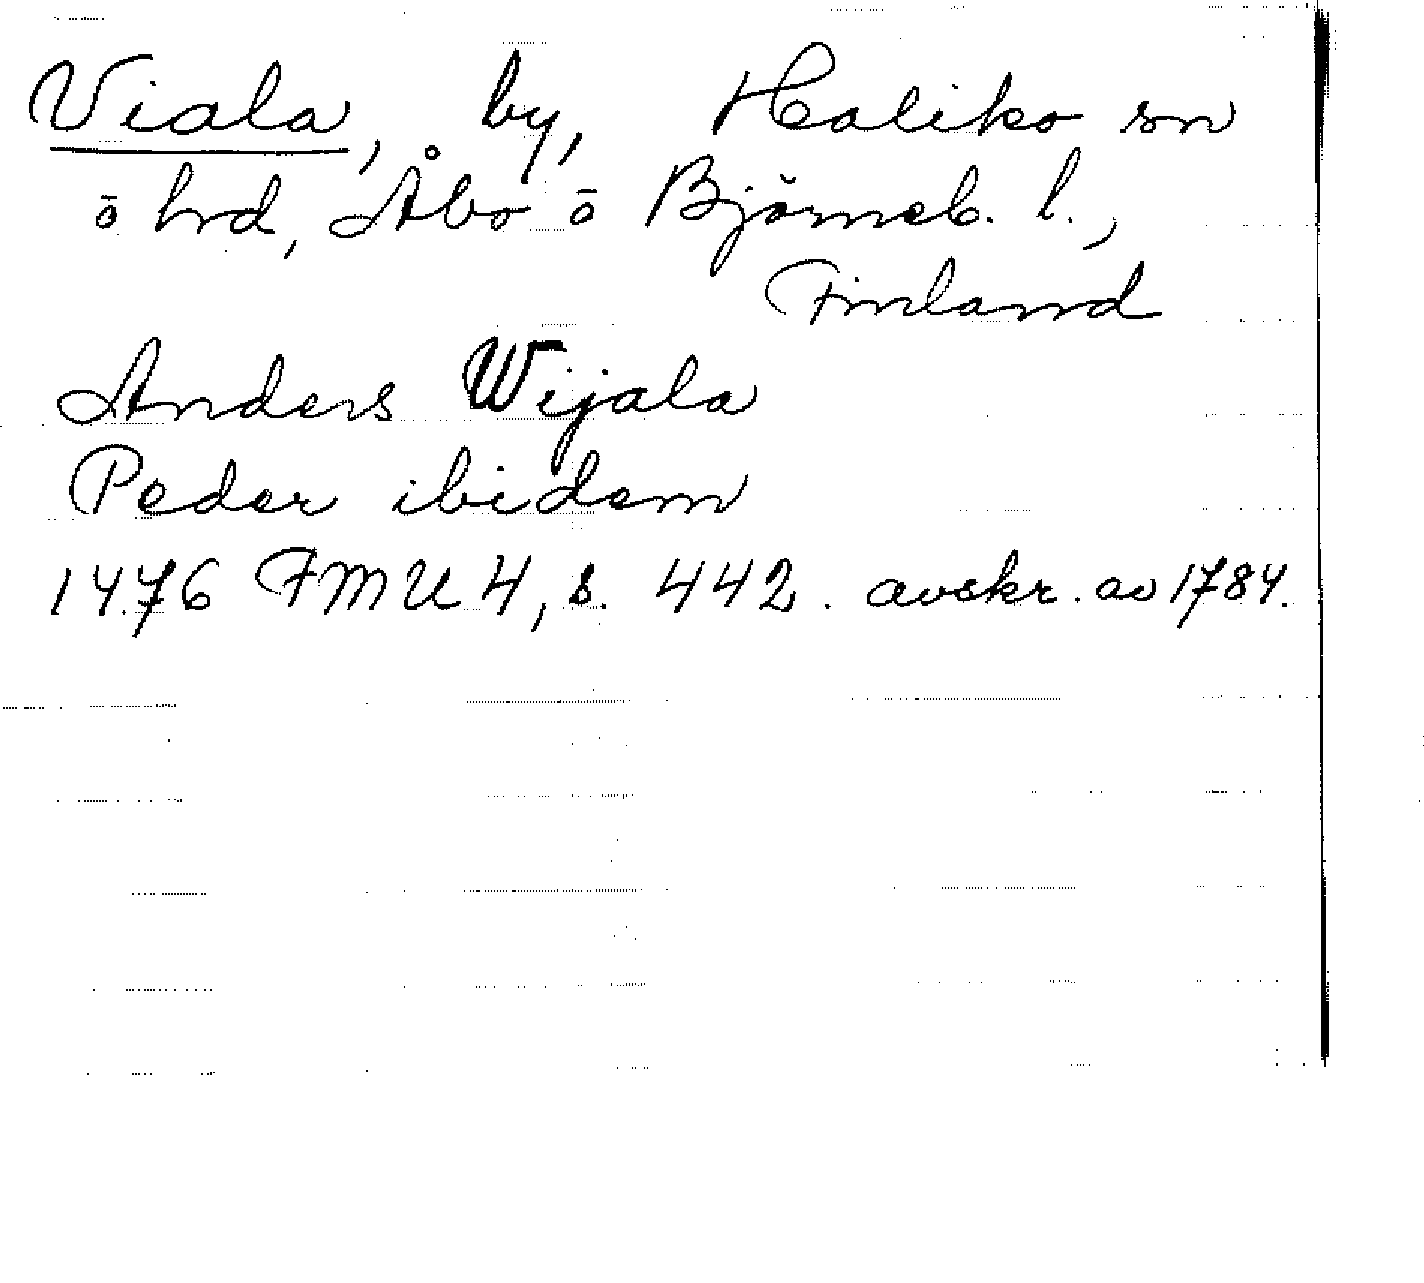 Viala, by, Haliko sn
ō hrd, Åbo ō Björneb. l.,
Finland
Anders Wijala
Peder ibidem
1476 FMU 4, s. 442. avskr. av 1784.